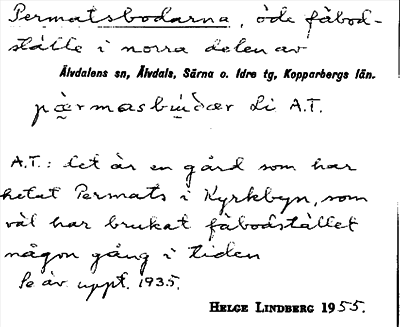 Permatsbodarna, öde fäbod-
ställe i norra delen av
Älvdalens sn, Älvdals, Särna o. Idre tg, Kopparbergs län.
pä̀rmasbu̇̀dær Li A.T.
A.T.: det är en gård som har
hetat Permats i Kyrkbyn, som
väl har brukat fäbodstället
någon gång i tiden
Se äv. uppt. 1935.
HELGE LINDBERG 1955.